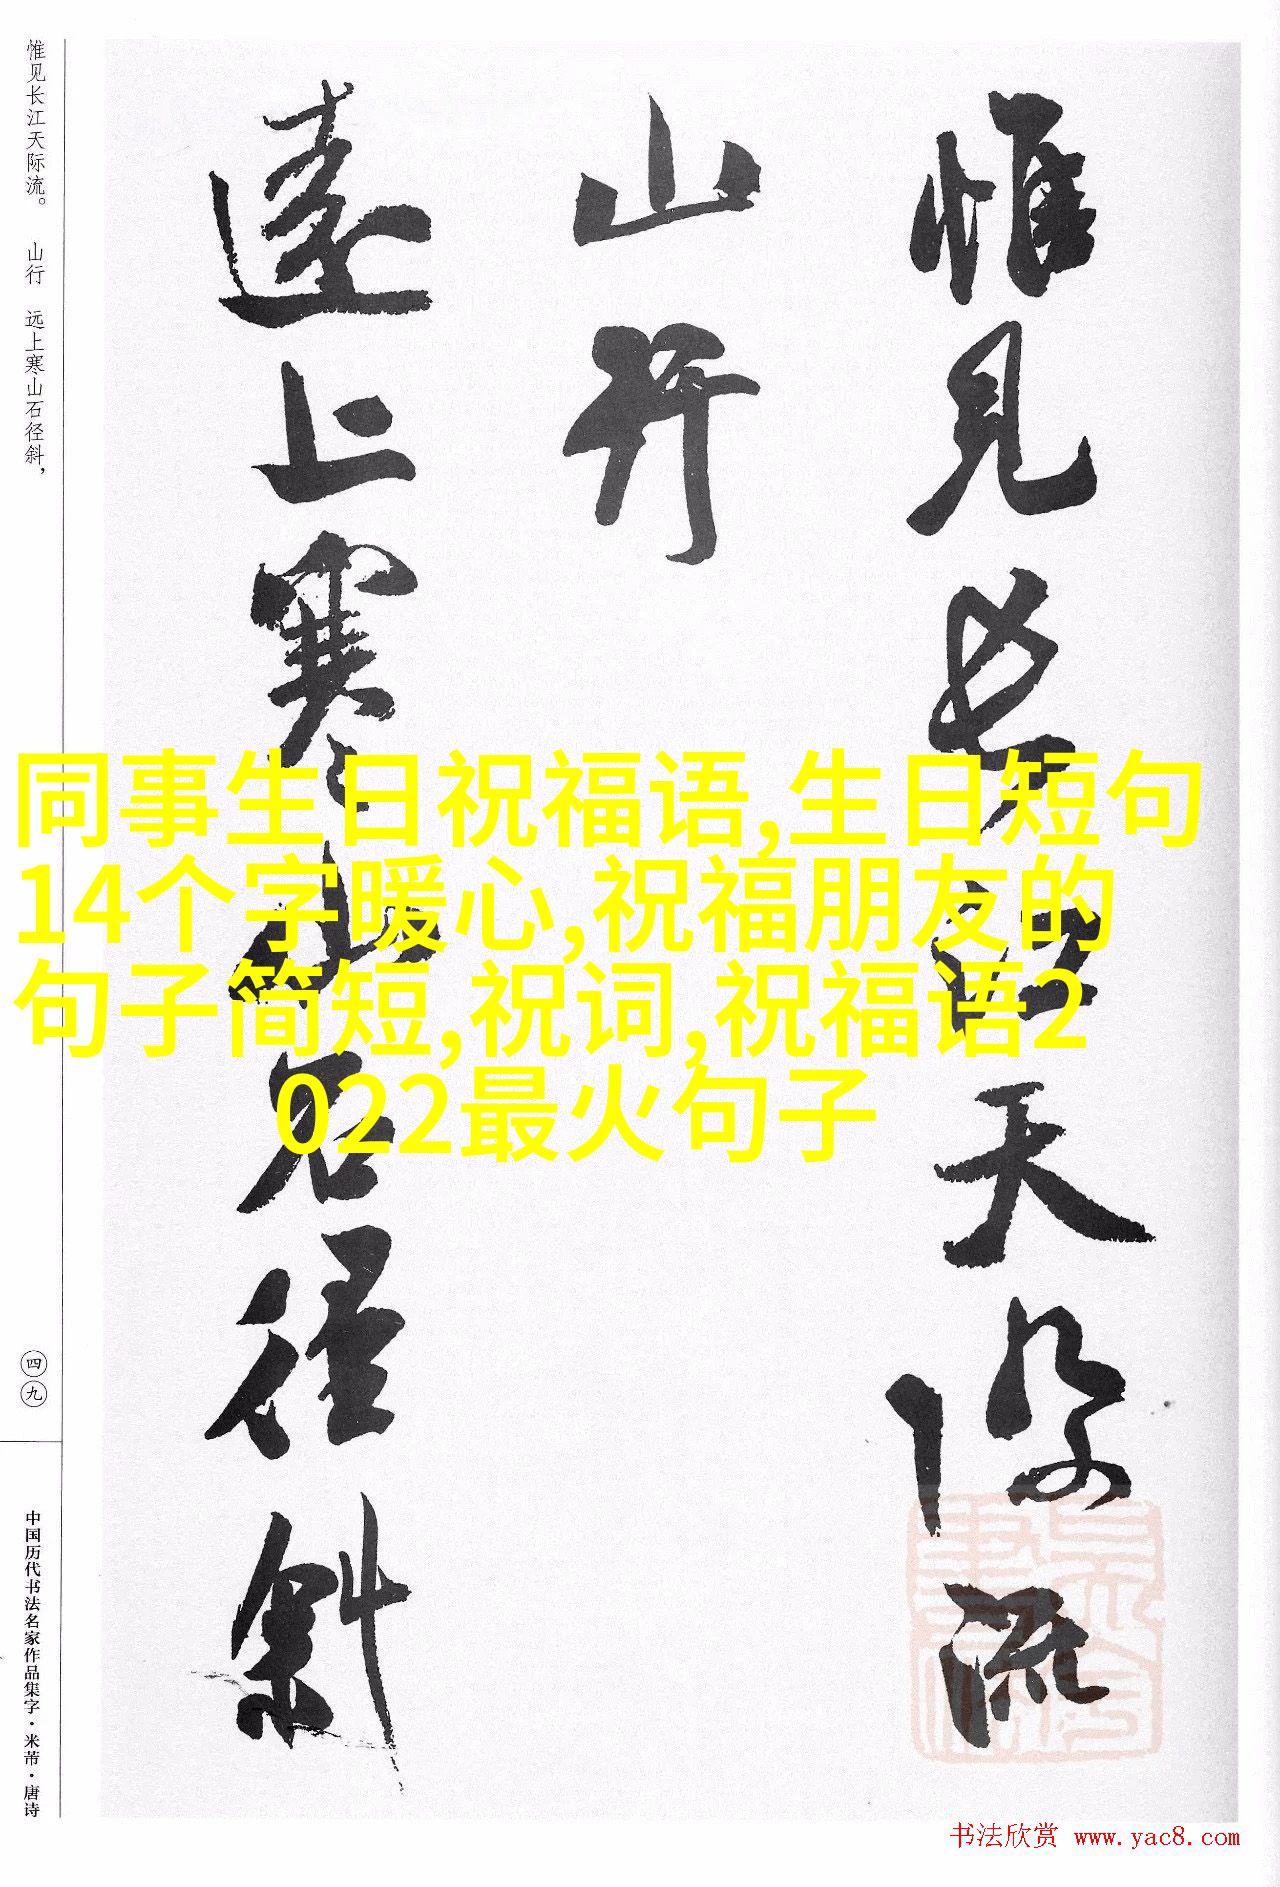 惟见长江天际流。 山行 远上寒山石径斜，
惟见长江天际流
山行
远上寒山石径斜
同事生日祝福语,生日短句
14个字暖心,祝福朋友的
句子简短,祝词,祝福语2
022最火句子
四九
中国历代书法名家作品集字·米芾·唐诗
书法欣赏 www.yac8.com